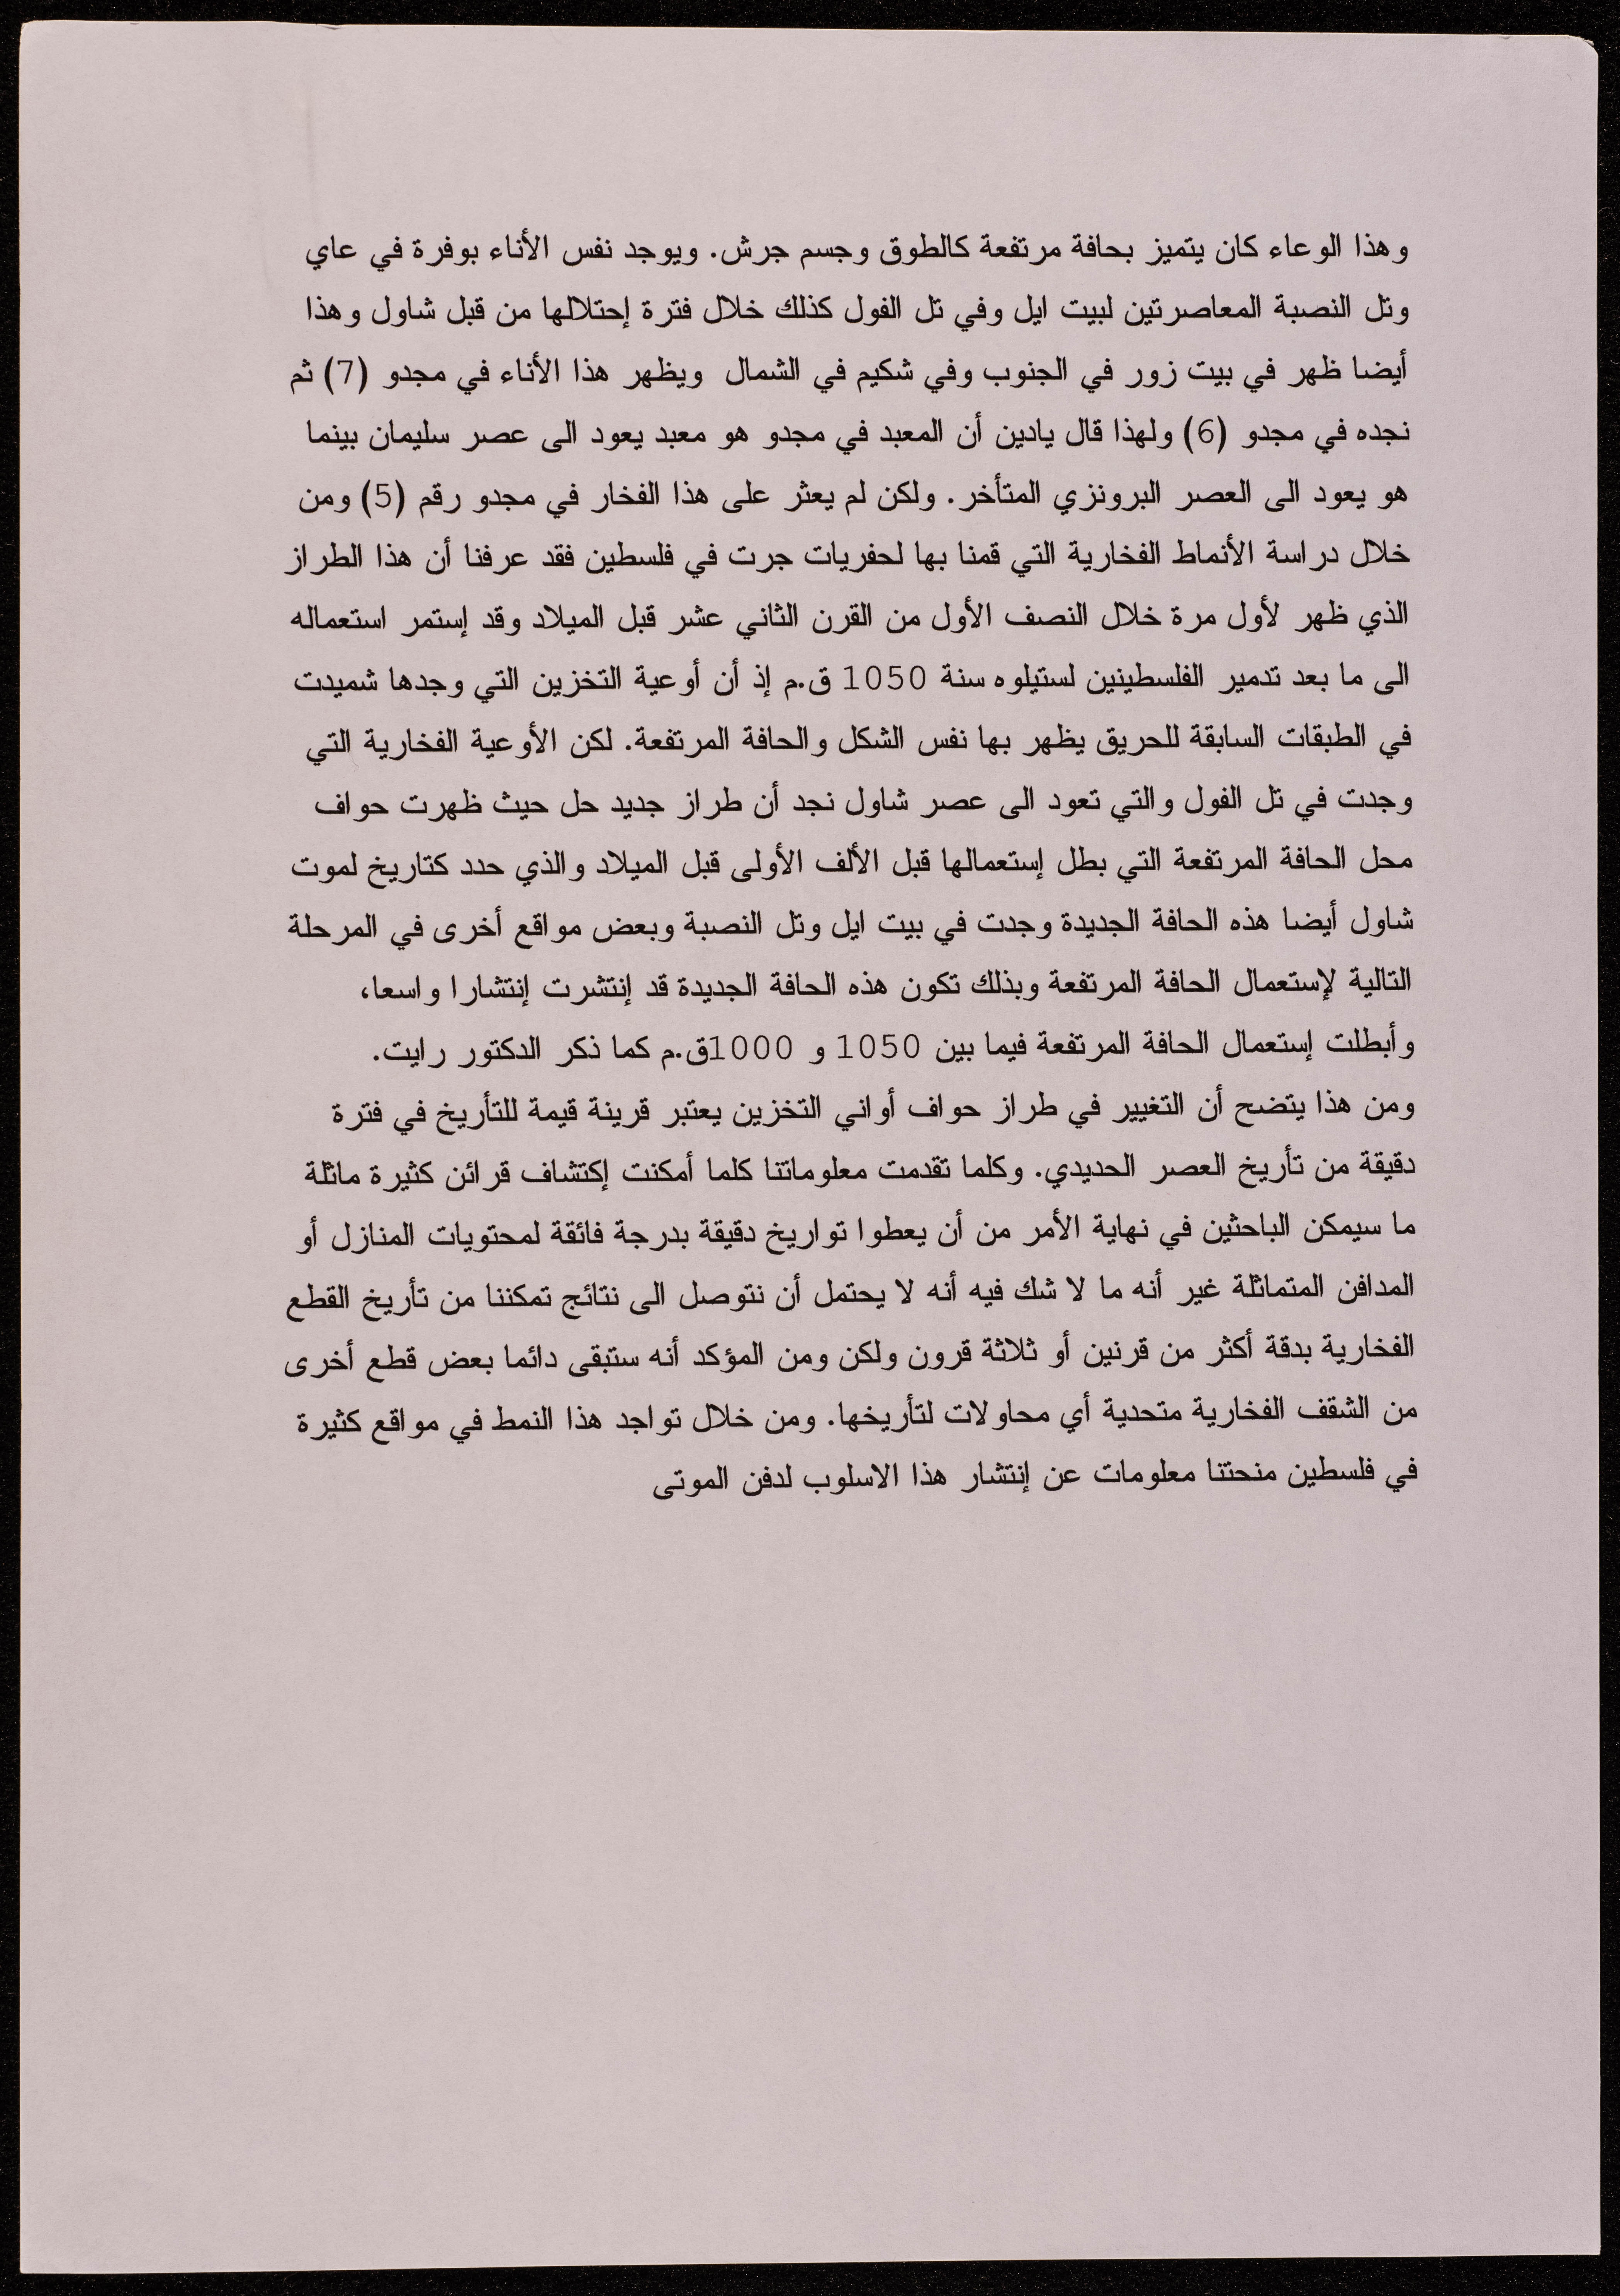 وهذا الوعاء كان يتميز بحافة مرتفعة كالطوق وجسم جرش. ويوجد نفس الأناء بوفرة في عاي
وتل النصبة المعاصرتين لبيت ايل وفي تل الفول كذلك خلال فترة إحتلالها من قبل شاول وهذا
أيضا ظهر في بيت زور في الجنوب وفي شكيم في الشمال ويظهر هذا الأناء في مجدو (7) ثم
نجده في مجدو (6) ولهذا قال يادين أن المعبد في مجدو هو معبد يعود الى عصر سليمان بينما
هو يعود الى العصر البرونزي المتأخر. ولكن لم يعثر على هذا الفخار في مجدو رقم (5) ومن
خلال دراسة الأنماط الفخارية التي قمنا بها لحفريات جرت في فلسطين فقد عرفنا أن هذا الطراز
الذي ظهر لأول مرة خلال النصف الأول من القرن الثاني عشر قبل الميلاد وقد إستمر استعماله
الى ما بعد تدمير الفلسطينين لستيلوه سنة 1050 ق.م إذ أن أوعية التخزين التي وجدها شميدت
في الطبقات السابقة للحريق يظهر بها نفس الشكل والحافة المرتفعة. لكن الأوعية الفخارية التي
وجدت في تل الفول والتي تعود الى عصر شاول نجد أن طراز جديد حل حيث ظهرت حواف
محل الحافة المرتفعة التي بطل إستعمالها قبل الألف الأولى قبل الميلاد والذي حدد كتاريخ لموت
شاول أيضا هذه الحافة الجديدة وجدت في بيت ايل وتل النصبة وبعض مواقع أخرى في المرحلة
التالية لإستعمال الحافة المرتفعة وبذلك تكون هذه الحافة الجديدة قد إنتشرت إنتشارا واسعا،
وأبطلت إستعمال الحافة المرتفعة فيما بين 1050 و 1000ق.م كما ذكر الدكتور رايت.
ومن هذا يتضح أن التغيير في طراز حواف أواني التخزين يعتبر قرينة قيمة للتأريخ في فترة
دقيقة من تأريخ العصر الحديدي. وكلما تقدمت معلوماتنا كلما أمكنت إكتشاف قرائن كثيرة ماثلة
ما سيمكن الباحثين في نهاية الأمر من أن يعطوا تواريخ دقيقة بدرجة فائقة لمحتويات المنازل أو
المدافن المتماثلة غير أنه ما لا شك فيه أنه لا يحتمل أن نتوصل الى نتائج تمكننا من تأريخ القطع
الفخارية بدقة أكثر من قرنين أو ثلاثة قرون ولكن ومن المؤكد أنه ستبقى دائما بعض قطع أخرى
من الشقف الفخارية متحدية أي محاولات لتأريخها. ومن خلال تواجد هذا النمط في مواقع كثيرة
في فلسطين منحتنا معلومات عن إنتشار هذا الاسلوب لدفن الموتى